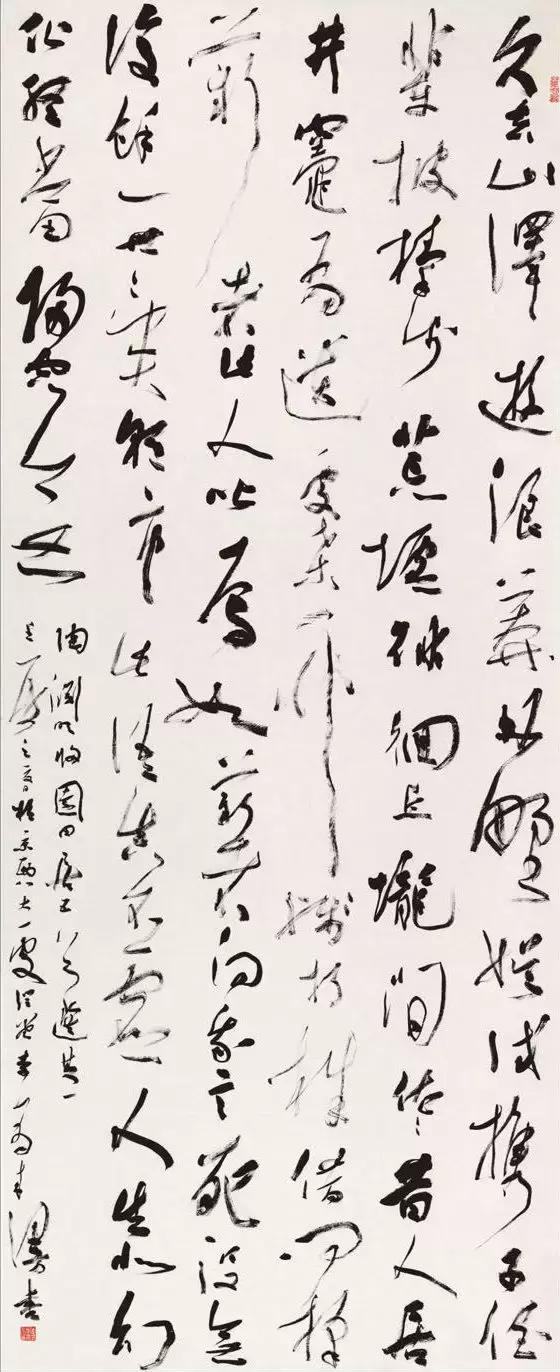 久去山澤遊浪莽林野娛試携子侄
輩披榛步荒墟徘徊丘壠間依依昔人居
井竈有遺處桑竹殘朽株借問採
薪者此人皆焉如薪者向我言死没無
復餘一世異朝市此語真不虛人生似幻
化終當歸空無
陶淵明歸園田居五首選其一
書